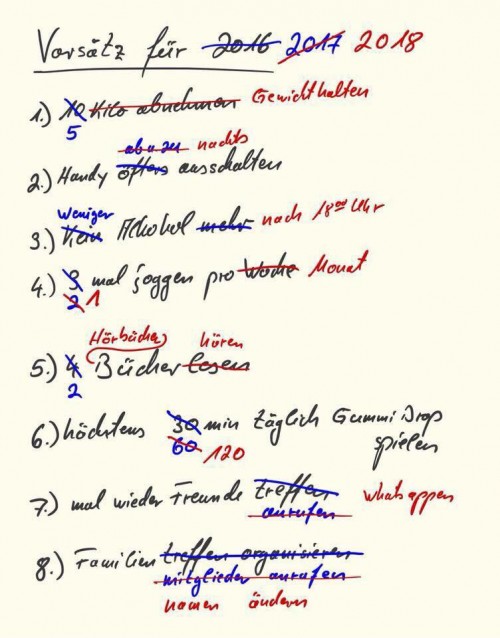 Vorsätz für 2016 2017 2018
1.) 10 Kilo abnehmen Gewicht halten
5
ab u zu nachts
2.) Handy öfters ausschalten
Weniger
3.) Kein Alkohol mehr nach 18⁰⁰ Uhr
4.) 3 mal joggen pro Woche Monat
2 1
Hörbücher hören
5.) 4 Bücher lesen
2
6.) höchstens 30 min täglich Gummi Drop
60 120 spielen
7.) mal wieder Freunde treffen whatsappen
anrufen
8.) Familientreffen organisieren
mitglieder anrufen
namen ändern